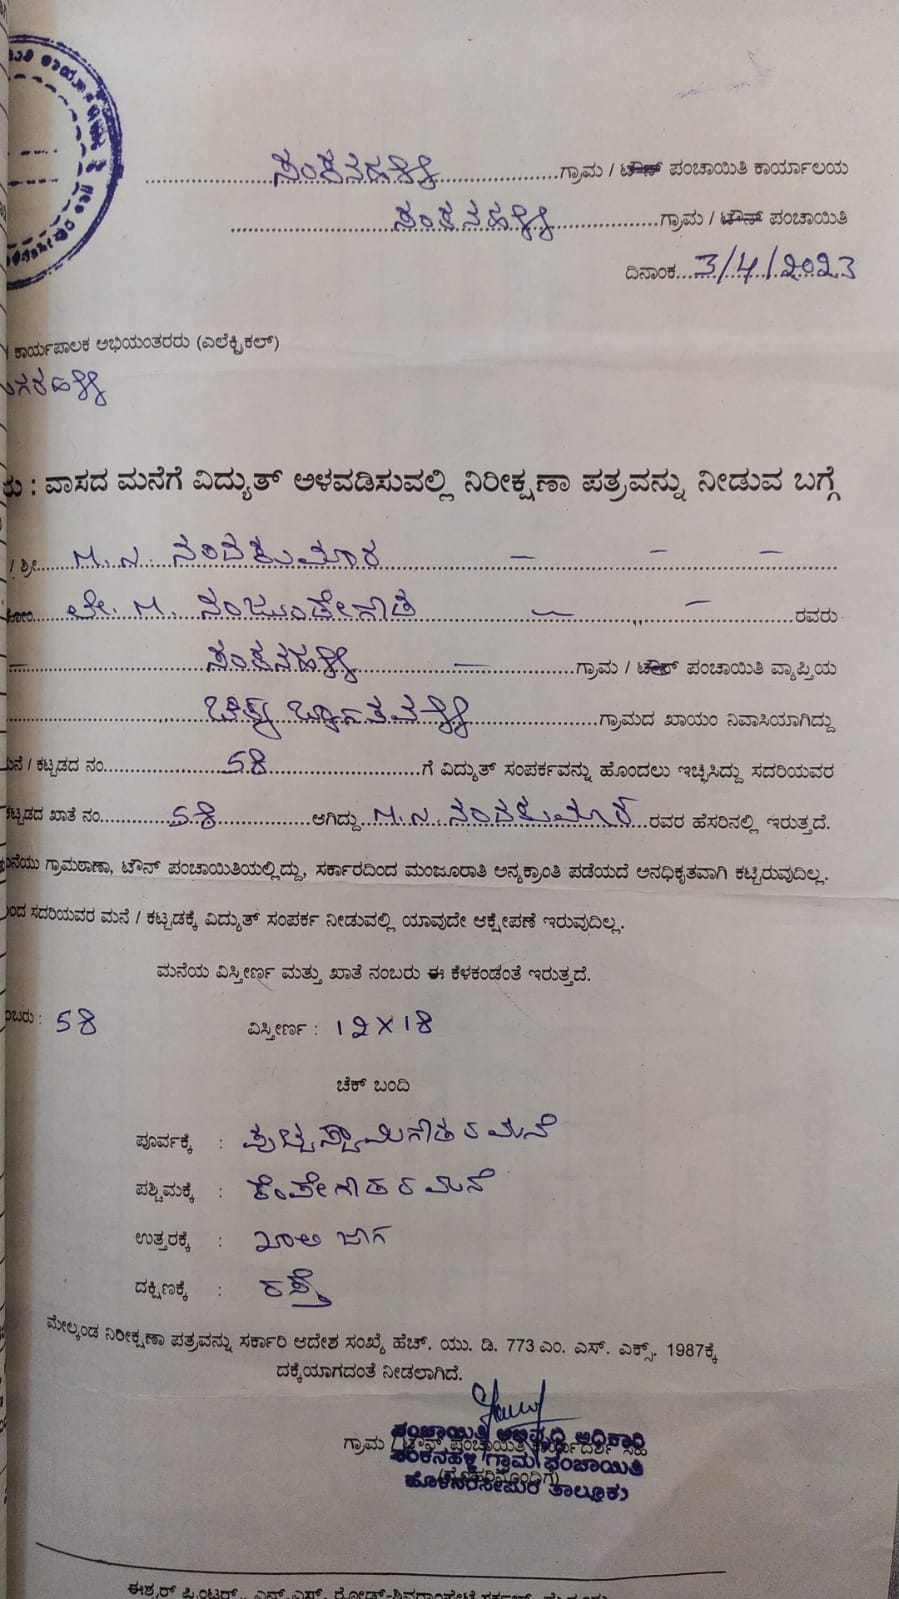 ಸಂಕನಹಳ್ಳಿ ಗ್ರಾಮ / ಟೌನ್ ಪಂಚಾಯಿತಿ ಕಾರ್ಯಾಲಯ
ಸಂಕನಹಳ್ಳಿ ಗ್ರಾಮ / ಟೌನ್ ಪಂಚಾಯಿತಿ
ದಿನಾಂಕ 3/4/2023
ಕಾರ್ಯಪಾಲಕ ಅಭಿಯಂತರರು (ಎಲೆಕ್ಟ್ರಿಕಲ್)
: ವಾಸದ ಮನೆಗೆ ವಿದ್ಯುತ್ ಅಳವಡಿಸುವಲ್ಲಿ ನಿರೀಕ್ಷಣಾ ಪತ್ರವನ್ನು ನೀಡುವ ಬಗ್ಗೆ
/ ಶ್ರೀ M.N. ನಂದಕುಮಾರ
ಲೇ. M. ನಂಜುಂಡೇಗೌಡ ರವರು
ಸಂಕನಹಳ್ಳಿ ಗ್ರಾಮ / ಟೌನ್ ಪಂಚಾಯಿತಿ ವ್ಯಾಪ್ತಿಯ
ಗ್ರಾಮದ ಖಾಯಂ ನಿವಾಸಿಯಾಗಿದ್ದು
/ ಕಟ್ಟಡದ ನಂ 58 ಗೆ ವಿದ್ಯುತ್ ಸಂಪರ್ಕವನ್ನು ಹೊಂದಲು ಇಚ್ಛಿಸಿದ್ದು ಸದರಿಯವರ
ಕಟ್ಟಡದ ಖಾತೆ ನಂ 58 ಆಗಿದ್ದು M.N. ನಂದಕುಮಾರ ರವರ ಹೆಸರಿನಲ್ಲಿ ಇರುತ್ತದೆ.
ಗ್ರಾಮಠಾಣಾ, ಟೌನ್ ಪಂಚಾಯಿತಿಯಲ್ಲಿದ್ದು, ಸರ್ಕಾರದಿಂದ ಮಂಜೂರಾತಿ ಅನ್ಯಕ್ರಾಂತಿ ಪಡೆಯದೆ ಅನಧಿಕೃತವಾಗಿ ಕಟ್ಟಿರುವುದಿಲ್ಲ.
ಸದರಿಯವರ ಮನೆ / ಕಟ್ಟಡಕ್ಕೆ ವಿದ್ಯುತ್ ಸಂಪರ್ಕ ನೀಡುವಲ್ಲಿ ಯಾವುದೇ ಆಕ್ಷೇಪಣೆ ಇರುವುದಿಲ್ಲ.
ಮನೆಯ ವಿಸ್ತೀರ್ಣ ಮತ್ತು ಖಾತೆ ನಂಬರು ಈ ಕೆಳಕಂಡಂತೆ ಇರುತ್ತದೆ.
58 ವಿಸ್ತೀರ್ಣ : 12 X 18
ಚೆಕ್ ಬಂದಿ
ಪೂರ್ವಕ್ಕೆ : ಪುಟ್ಟಸ್ವಾಮಿಗೌಡರ ಮನೆ
ಪಶ್ಚಿಮಕ್ಕೆ : ಕೆಂಪೇಗೌಡರ ಮನೆ
ಉತ್ತರಕ್ಕೆ : ಖಾಲಿ ಜಾಗ
ದಕ್ಷಿಣಕ್ಕೆ : ರಸ್ತೆ
ಮೇಲ್ಕಂಡ ನಿರೀಕ್ಷಣಾ ಪತ್ರವನ್ನು ಸರ್ಕಾರಿ ಆದೇಶ ಸಂಖ್ಯೆ ಹೆಚ್. ಯು. ಡಿ. 773 ಎಂ. ಎಸ್. ಎಕ್ಸ್. 1987ಕ್ಕೆ
ದಕ್ಕೆಯಾಗದಂತೆ ನೀಡಲಾಗಿದೆ.
ಪಂಚಾಯಿತಿ ಅಭಿವೃದ್ಧಿ ಅಧಿಕಾರಿ
ಸಂಕನಹಳ್ಳಿ ಗ್ರಾಮ ಪಂಚಾಯಿತಿ
ಹೊಳೆನರಸೀಪುರ ತಾಲ್ಲೂಕು